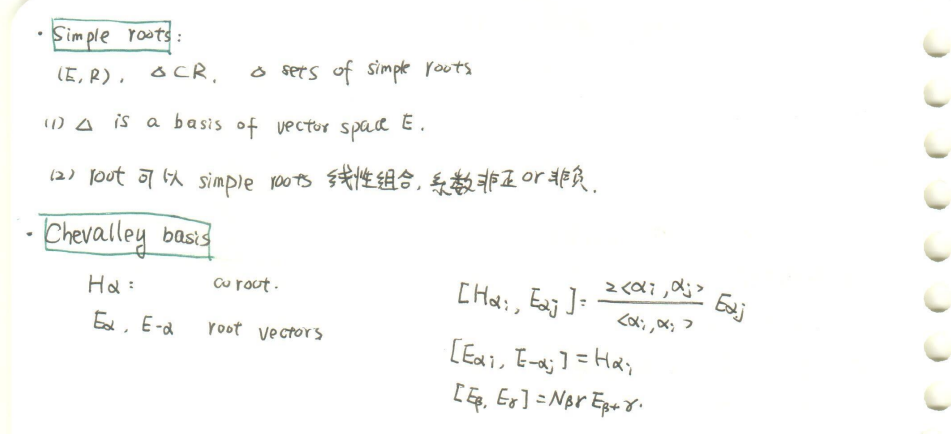 · Simple roots:
(E, R), Δ⊂R. Δ sets of simple roots
(1) Δ is a basis of vector space E.
(2) root 可以 simple roots 线性组合, 系数非正 or 非负.
· Chevalley basis
Hα: coroot.
Eα, E-α root vectors
[Hαi, Eαj] = 2<αi, αj> / <αi, αi> Eαj
[Eαi, E-αj] = Hαi
[Eβ, Eγ] = Nβγ Eβ+γ.